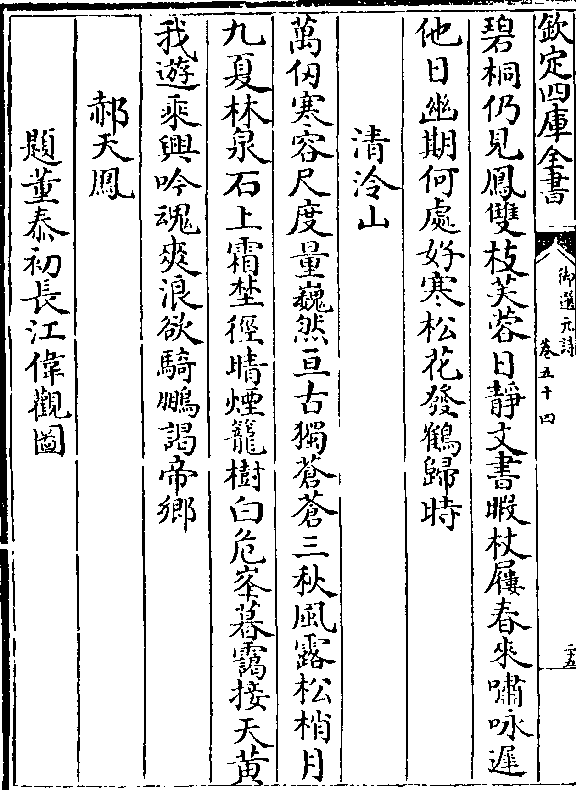 欽定四庫全書
御選元詩
卷五十四
二五
碧桐仍見鳳雙枝芙蓉日靜文書暇杖屨春來嘯咏遲
他日幽期何處好寒松花發鶴歸時
清泠山
萬仞寒容尺度量巍然亘古獨蒼蒼三秋風露松梢月
九夏林泉石上霜埜徑晴煙籠樹白危峯暮靄接天黃
我遊乘興吟魂爽浪欲騎鵬謁帝鄉
郝天鳳
題董泰初長江偉觀圖